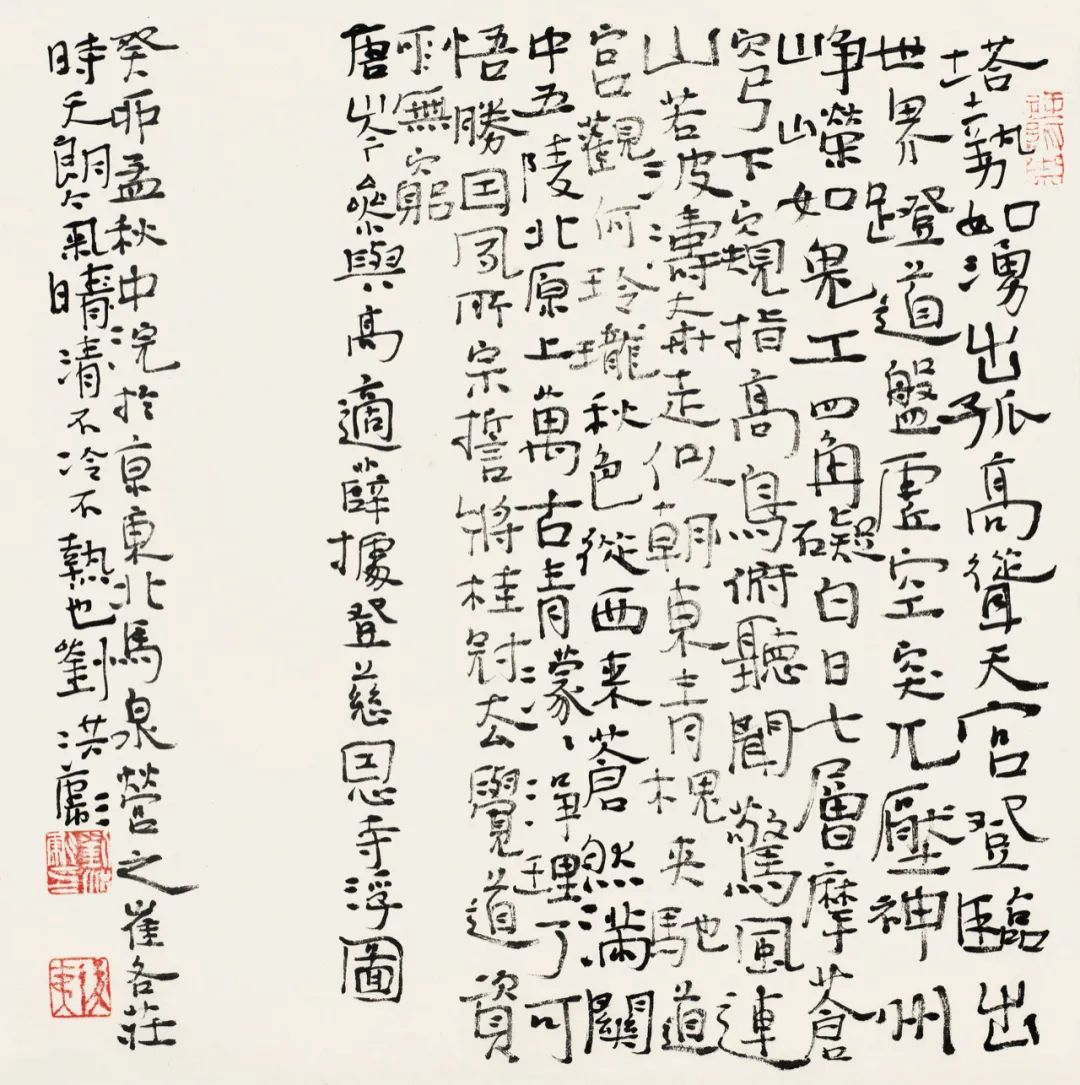 塔勢如湧出孤高聳天宮登臨出
世界蹬道盤虛空突兀壓神州
崢嶸如鬼工四角礙白日七層摩蒼
穹下窺指高鳥俯聽聞驚風連
山若波濤奔走似朝東青槐夾馳道
宮觀何玲瓏秋色從西来蒼然滿關
中五陵北原上萬古青濛〻淨理了可
悟勝因夙所宗誓將挂冠去覺道資
無窮
唐岑參與高適薛據登慈恩寺浮圖
癸卯孟秋中浣於京東北馬泉營之崔各莊
時天朗氣晴清不冷不熱也劉洪彪